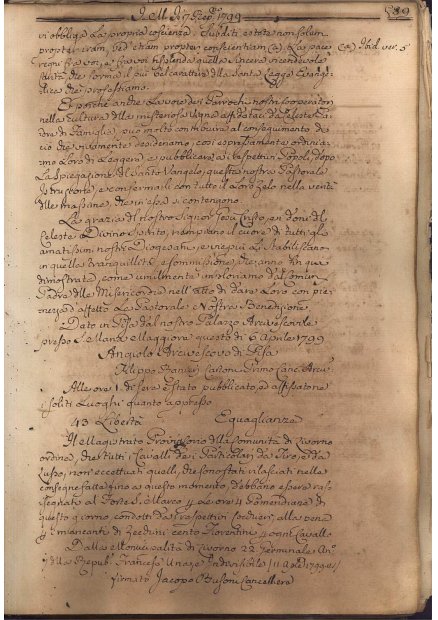 J. M. J. 17 Sec. 1799
vi obbliga la propria coscienza. Subditi estote non solum
propter iram, sed etiam propter conscientiam (a). La pace (a) Ibid. ver. 5
regni fra voi, e fra voi risplenda quella sincera vicendevole
carità, che forma il più bel carattere della Santa Legge Evange-
lica che professiamo.
E perché anche la voce dei Parrochi nostri Cooperatori
nella cultura della misteriosa Vigna affidataci dal Celeste Pa-
dre di Famiglia, può molto contribuire al conseguimento di
ciò che vivamente desideriamo, così espressamente ordinia-
mo Loro di leggere, e pubblicare ai rispettivi Popoli, dopo
la Spiegazione del Santo Vangelo, questa nostra Pastorale
Istruzione, e confermarli con tutto il Loro Zelo nella verità
delle massime, che in essa si contengono.
La grazia del nostro Signor Gesù Cristo, e i doni del
Celeste Divino Spirito, riempiano il cuore di tutti gli
amatissimi nostri Diogesani, e vie più li stabiliscano
in quella tranquillità, e sommissione, che anno fin qui
dimostrata, come umilmente imploriamo dal Comun
Padre delle Misericordie nell'atto di dare Loro con pie-
nezza d'affetto la Pastorale Nostra Benedizione
Dato in Pisa dal nostro Palazzo Arcivescovile
presso le Mura Maggiore questo dì 6 Aprile 1799
Angiolo Arcivescovo di Pisa
Filippo Canc. Arciv.
Alle ore 1. di sera è stato pubblicato, ed affisso ne
soliti Luoghi quanto appresso
43 Libertà Eguaglianza
Il Magistrato Provisorio della Comunità di Livorno
ordina, che tutti i Cavalli dei Particolari da Tiro, e da
Lusso, non eccettuati quelli, che sono stati rilasciati nelle
consegne fatte fino a questo momento, debbano essere ras-
segnati al Forte S. Marco p. le ore 4 Pomeridiane di
questo giorno condotti da rispettivi Conduieri, alla pena
p. i mancanti di Zecchini cento Fiorentini p. ogni Cavallo
Dalla Municipalità di Livorno 22 Germinale An.
della Repub. Francese Una, e Indivisibile (11 Aple 1799.)
firmato Jacopo Busoni Cancelliere